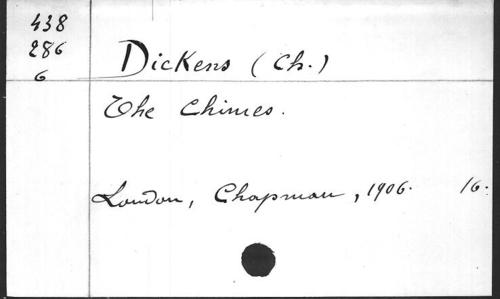 438
286
6
Dickens (Ch.)
The Chimes.
London, Chapman, 1906. 16.